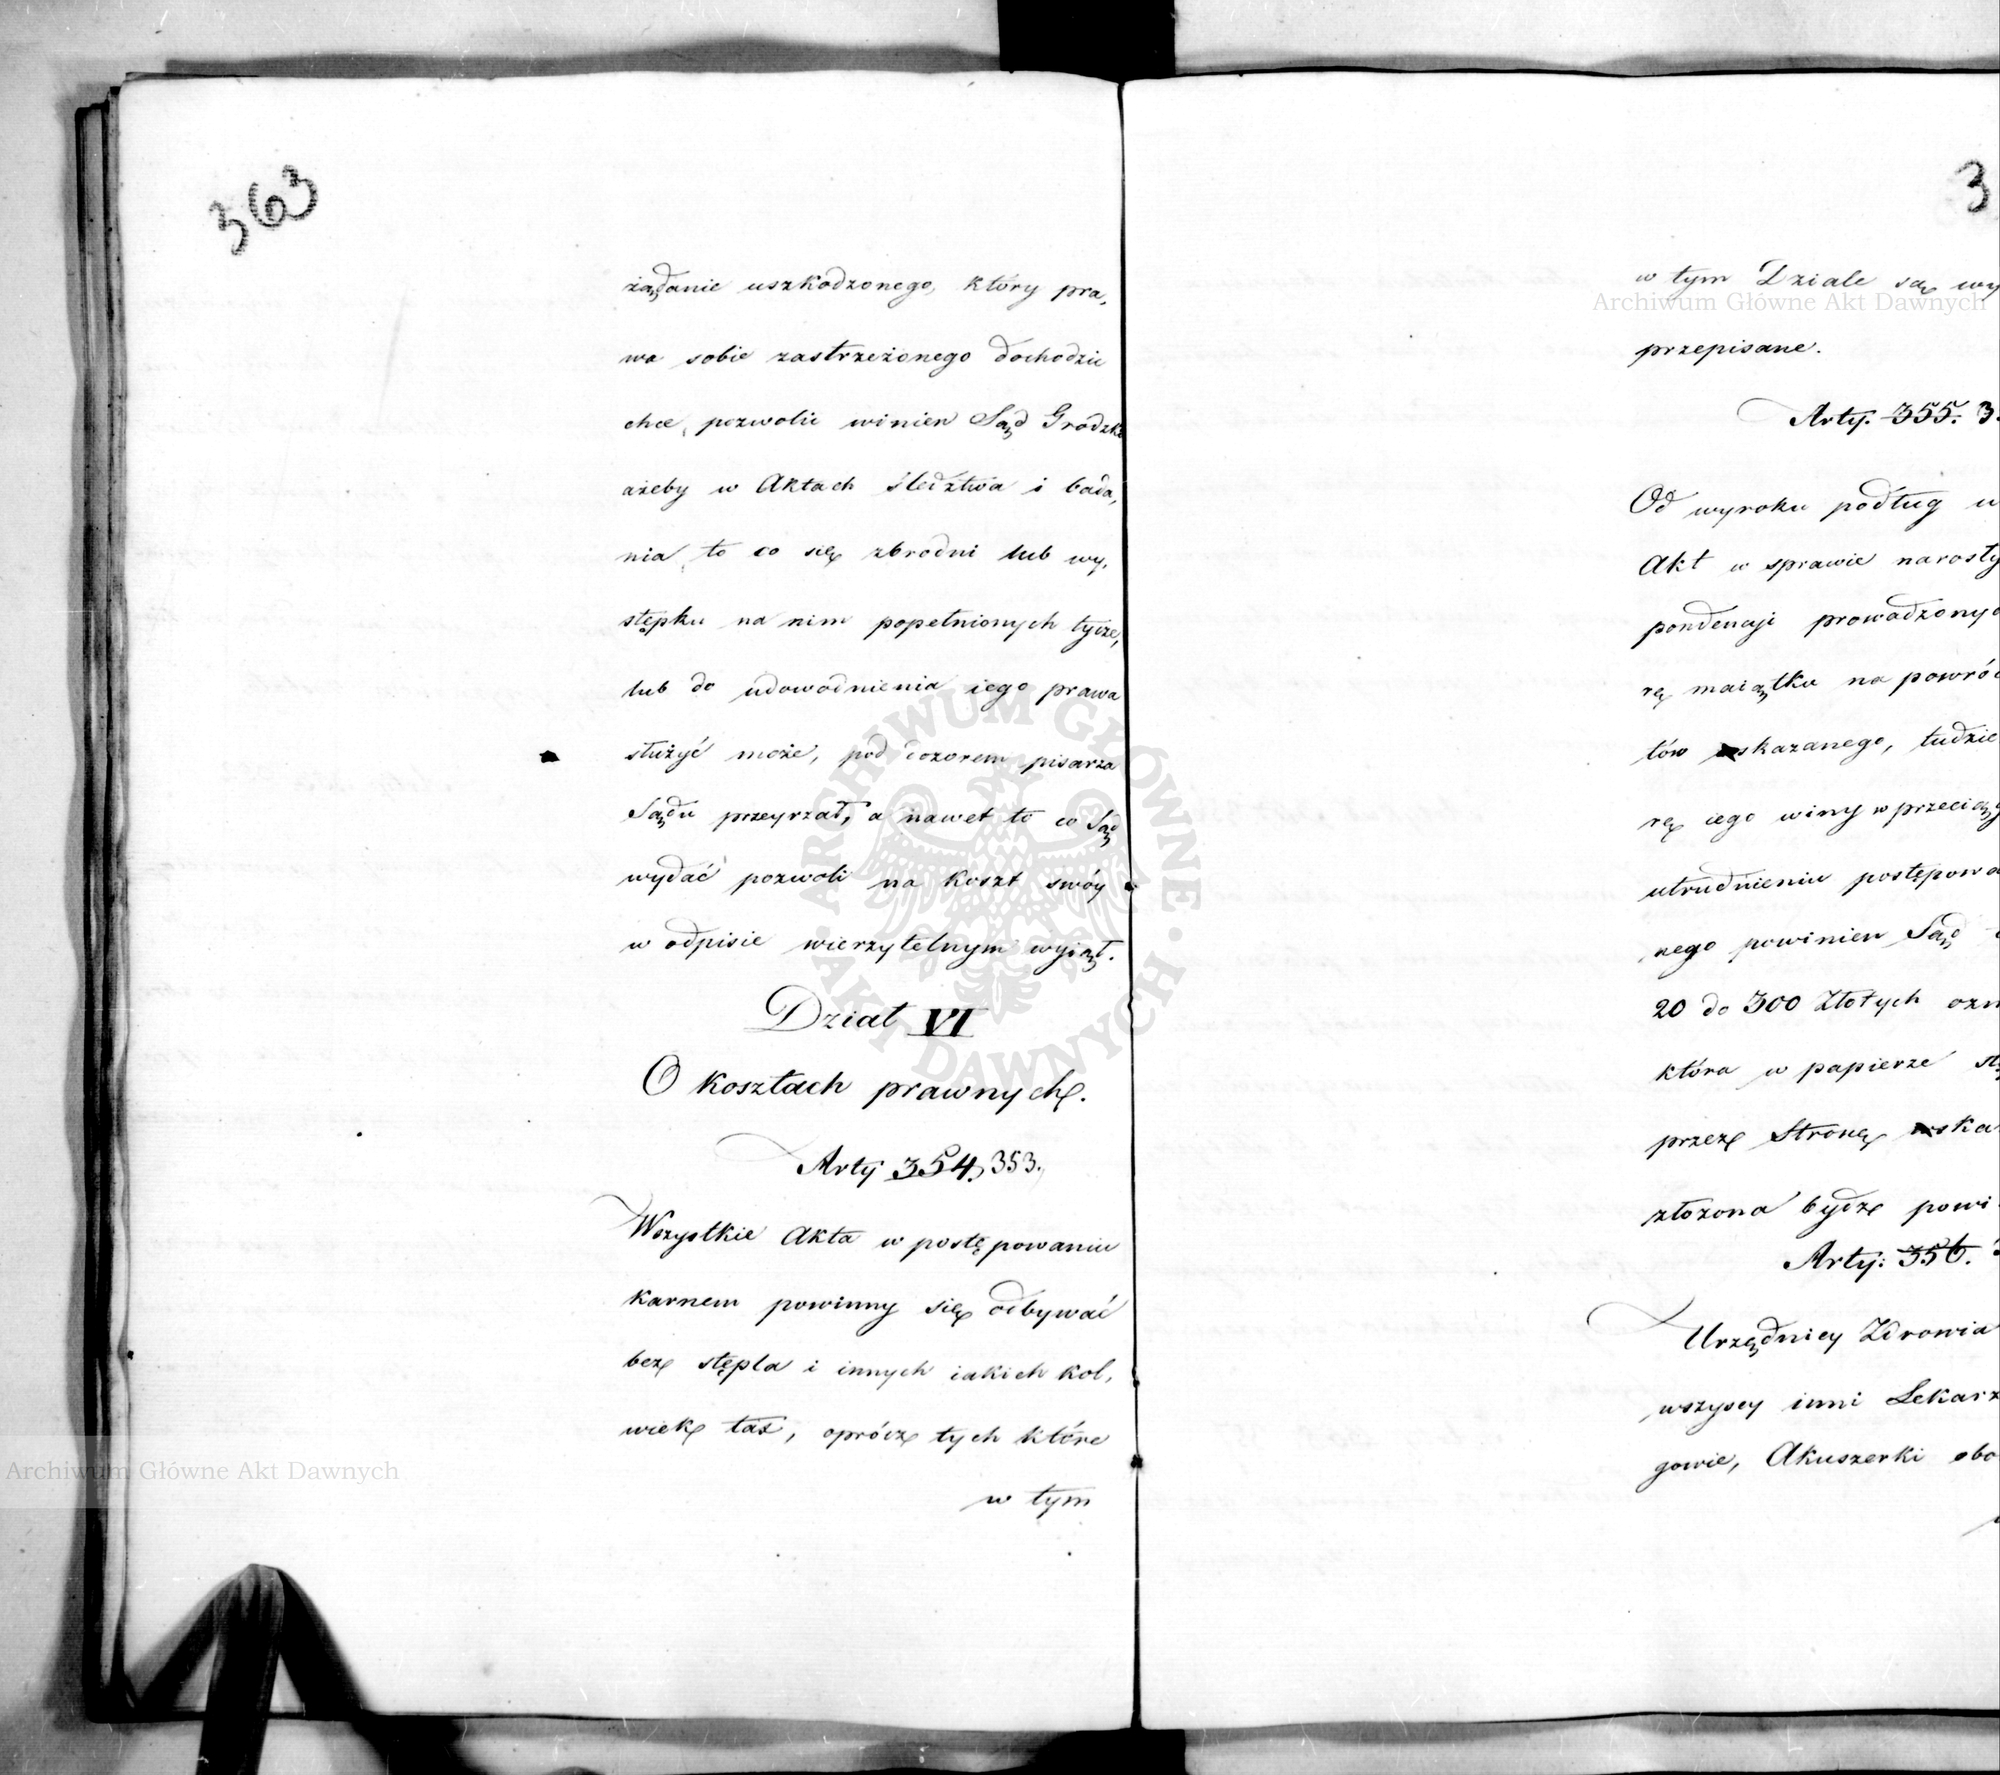 363
żądanie uszkodzonego, który pra,
wa sobie zastrzeżonego dochodzić
chce, pozwolić winien Sąd Grodzki
ażeby w Aktach śledztwa i bada,
nia, to co się zbrodni lub wy,
stępku na nim popełnionych tycze,
lub do udowodnienia iego prawa
służyć może, pod dozorem pisarza
Sądu przeyrzał, a nawet to co Sąd
wydać pozwoli na koszt swóy
w odpisie wierzytelnym wyiął.
Dział VI
O kosztach prawnych.
Arty 354. 353.
Wszystkie Akta w postępowaniu
karnem powinny się odbywać
bez stępla i innych iakich kol,
wiek tax, oprócz tych które
w tym
3
w tym Dziale są wy
przepisane.
Arty. 355. 3
Od wyroku podług u
Akt w sprawie narosły
pondencji prowadzonyc
rę maiątku na powróc
tów wskazanego, tudzie
rę iego winy w przeciąg
utrudnieniu postępowa
nego powinien Sąd
20 do 300 Złotych ozn
która w papierze stę
przez Stronę wska
złożona bydź powi
Arty: 356. 3
Urzędnicy Zdrowia
wszyscy inni Lekarz
gowie, Akuszerki obo
Archiwum Główne Akt Dawnych
Archiwum Główne Akt Dawnych
· ARCHIWUM GŁÓWNE · AKT DAWNYCH